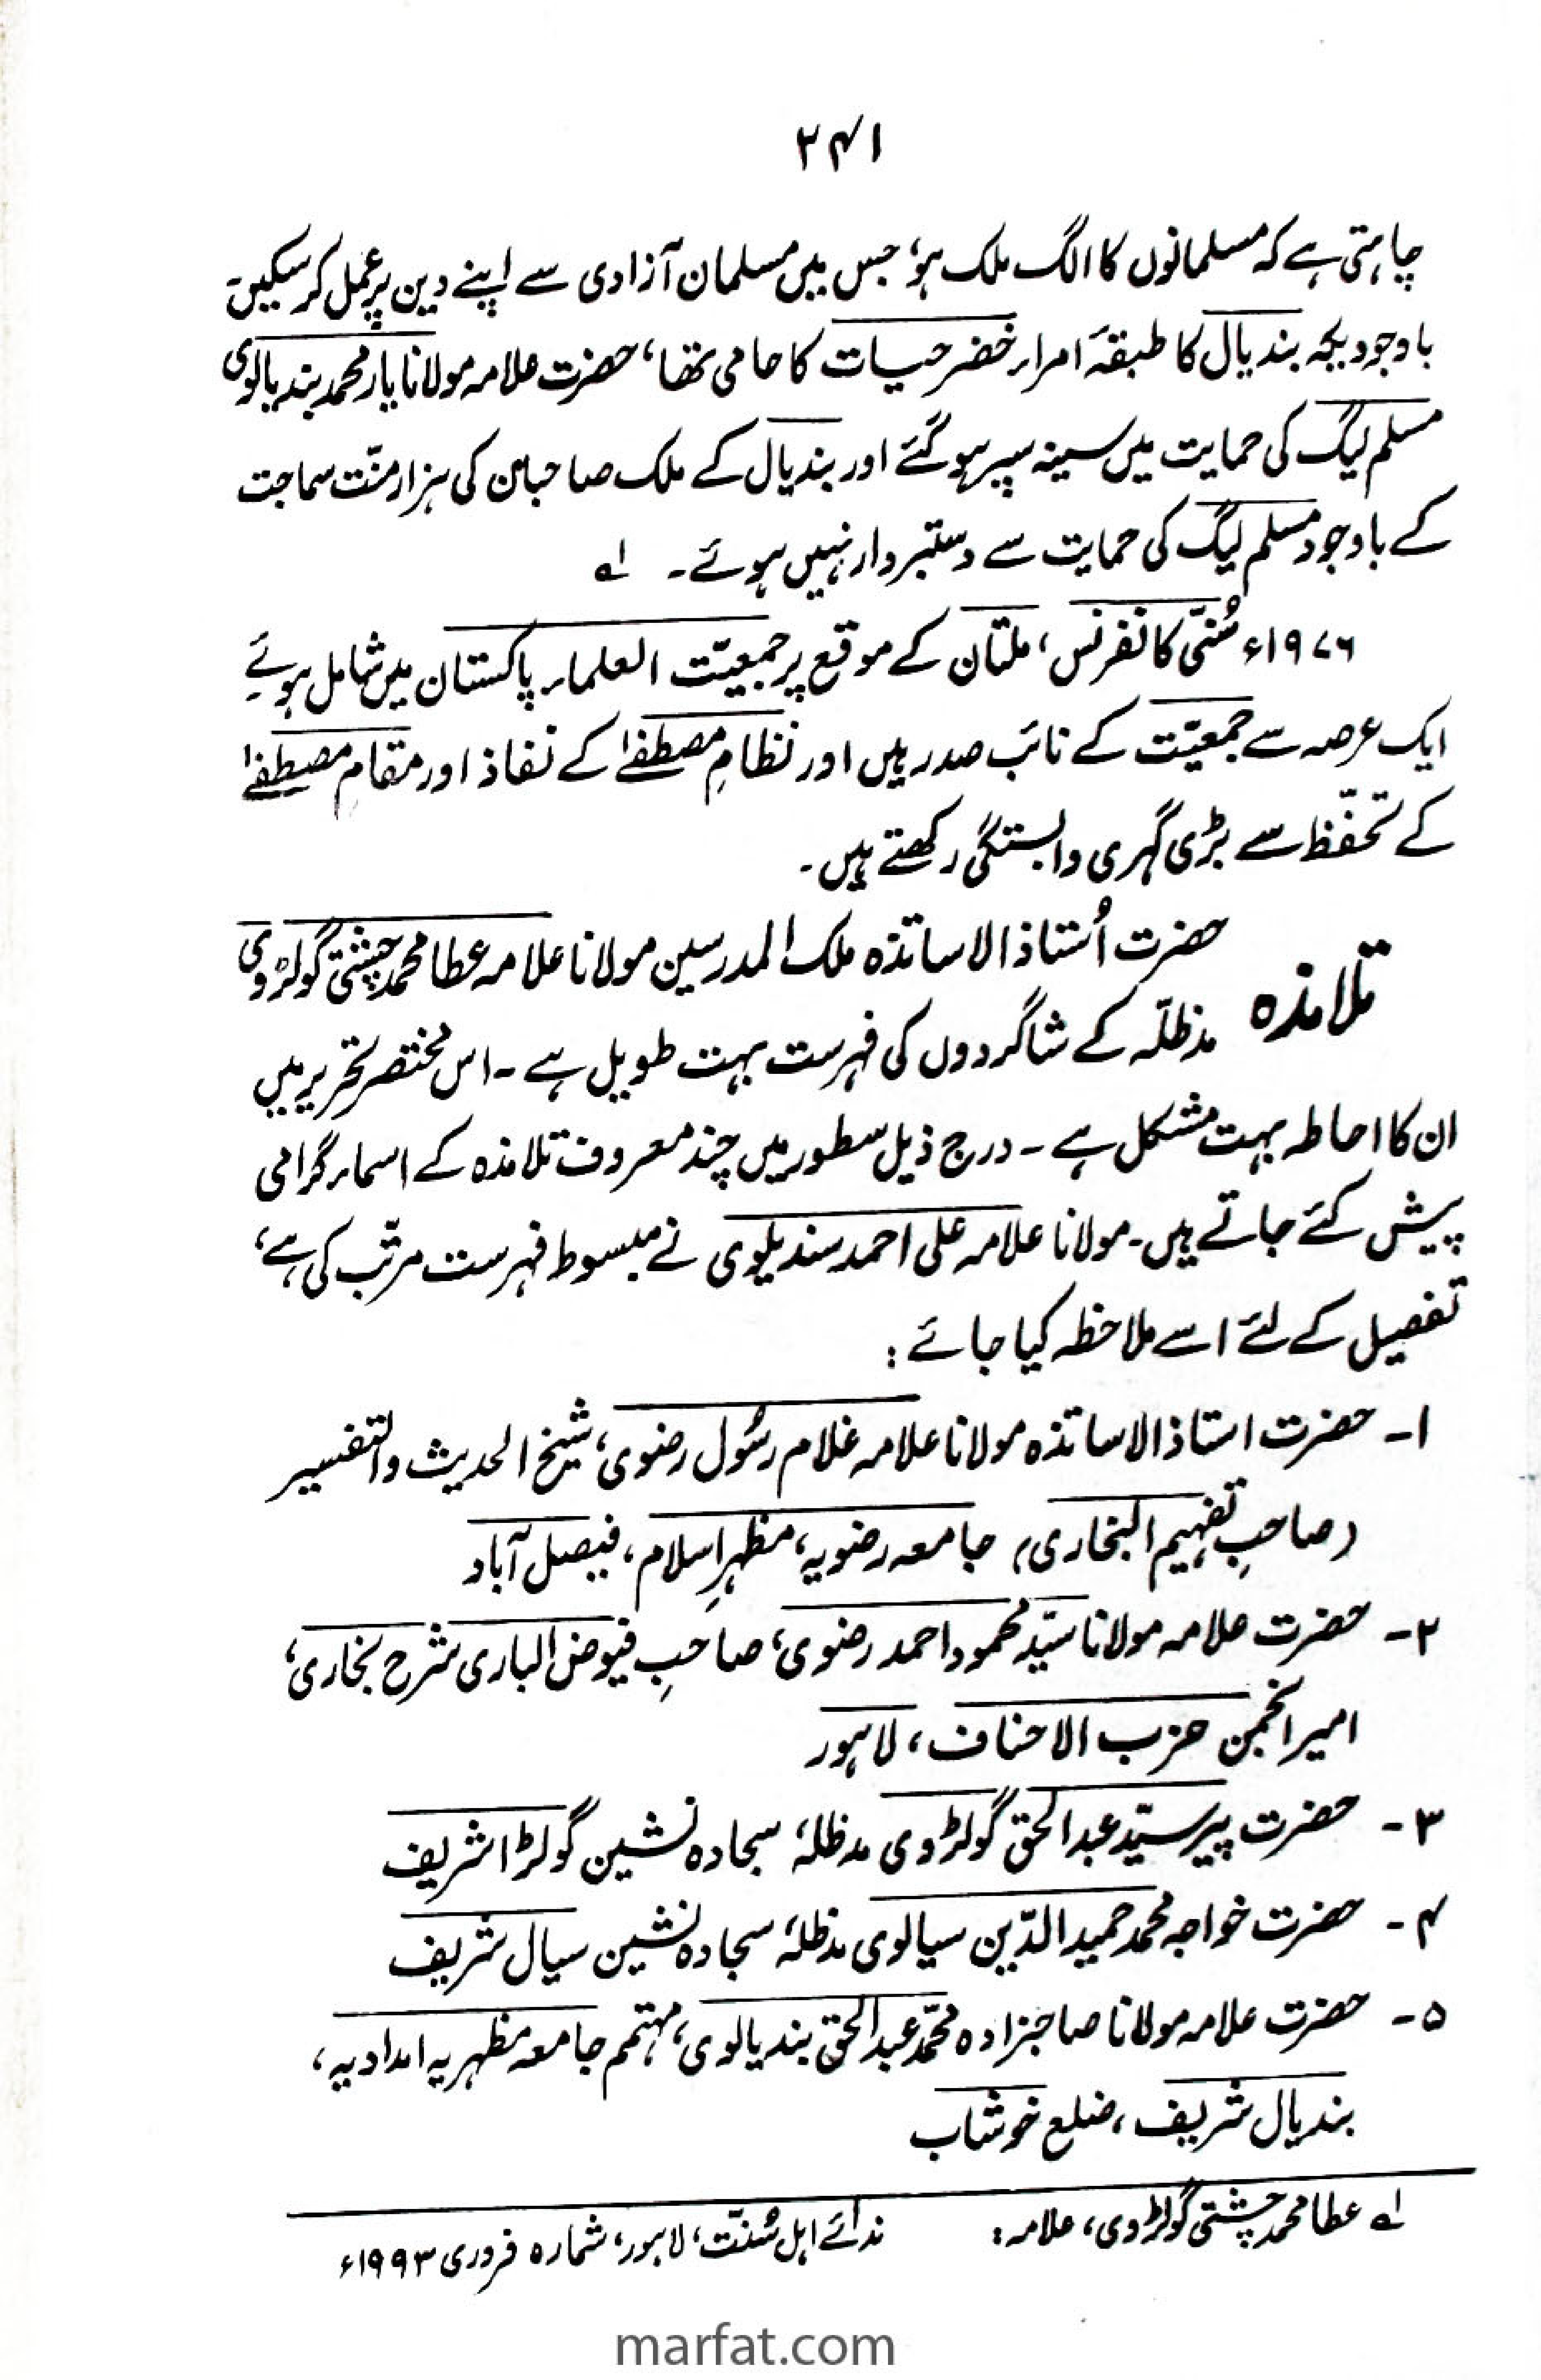 ۲۴۱
چاہتی ہے کہ مسلمانوں کا الگ ملک ہو، جس میں مسلمان آزادی سے اپنے دین پر عمل کر سکیں۔
باوجودیکہ بندیال کا طبقۂ امراء خضر حیات کا حامی تھا، حضرت علامہ مولانا یار محمد بندیالوی
مسلم لیگ کی حمایت میں سینہ سپر ہو گئے اور بندیال کے ملک صاحبان کی ہزار منّت سماجت
کے باوجود مسلم لیگ کی حمایت سے دستبردار نہیں ہوئے۔ ؎۱
۱۹۷۶ء سُنّی کانفرنس، ملتان کے موقع پر جمعیّت العلماء پاکستان میں شامل ہوئے
ایک عرصہ سے جمعیّت کے نائب صدر ہیں اور نظامِ مصطفےٰ کے نفاذ اور مقامِ مصطفےٰ
کے تحفّظ سے بڑی گہری وابستگی رکھتے ہیں۔
تلامذہ حضرت اُستاذ الاساتذہ ملک المدرسین مولانا علامہ عطا محمد چشتی گولڑوی
مدظلّہ کے شاگردوں کی فہرست بہت طویل ہے۔ اس مختصر تحریر میں
ان کا احاطہ بہت مشکل ہے۔ درج ذیل سطور میں چند معروف تلامذہ کے اسماء گرامی
پیش کئے جاتے ہیں۔ مولانا علامہ علی احمد سندیلوی نے مبسوط فہرست مرتّب کی ہے،
تفصیل کے لئے اسے ملاحظہ کیا جائے :
۱۔ حضرت استاذ الاساتذہ مولانا علامہ غلام رسُول رضوی، شیخ الحدیث والتفسیر
(صاحبِ تفہیم البخاری) جامعہ رضویہ، مظہرِ اسلام، فیصل آباد
۲۔ حضرت علامہ مولانا سیّد محمود احمد رضوی، صاحبِ فیوض الباری شرح بخاری،
امیر انجمن حزب الاحناف، لاہور
۳۔ حضرت پیر سیّد عبدالحق گولڑوی مدظلہٗ سجادہ نشین گولڑا شریف
۴۔ حضرت خواجہ محمد حمید الدّین سیالوی مدظلہٗ سجادہ نشین سیال شریف
۵۔ حضرت علامہ مولانا صاحبزادہ محمّد عبدالحق بندیالوی، مہتمم جامعہ مظہریہ امدادیہ،
بندیال شریف، ضلع خوشاب
؎۱ عطا محمد چشتی گولڑوی، علامہ: ندائے اہل سُنّت، لاہور، شمارہ فروری ۱۹۹۳ء
marfat.com